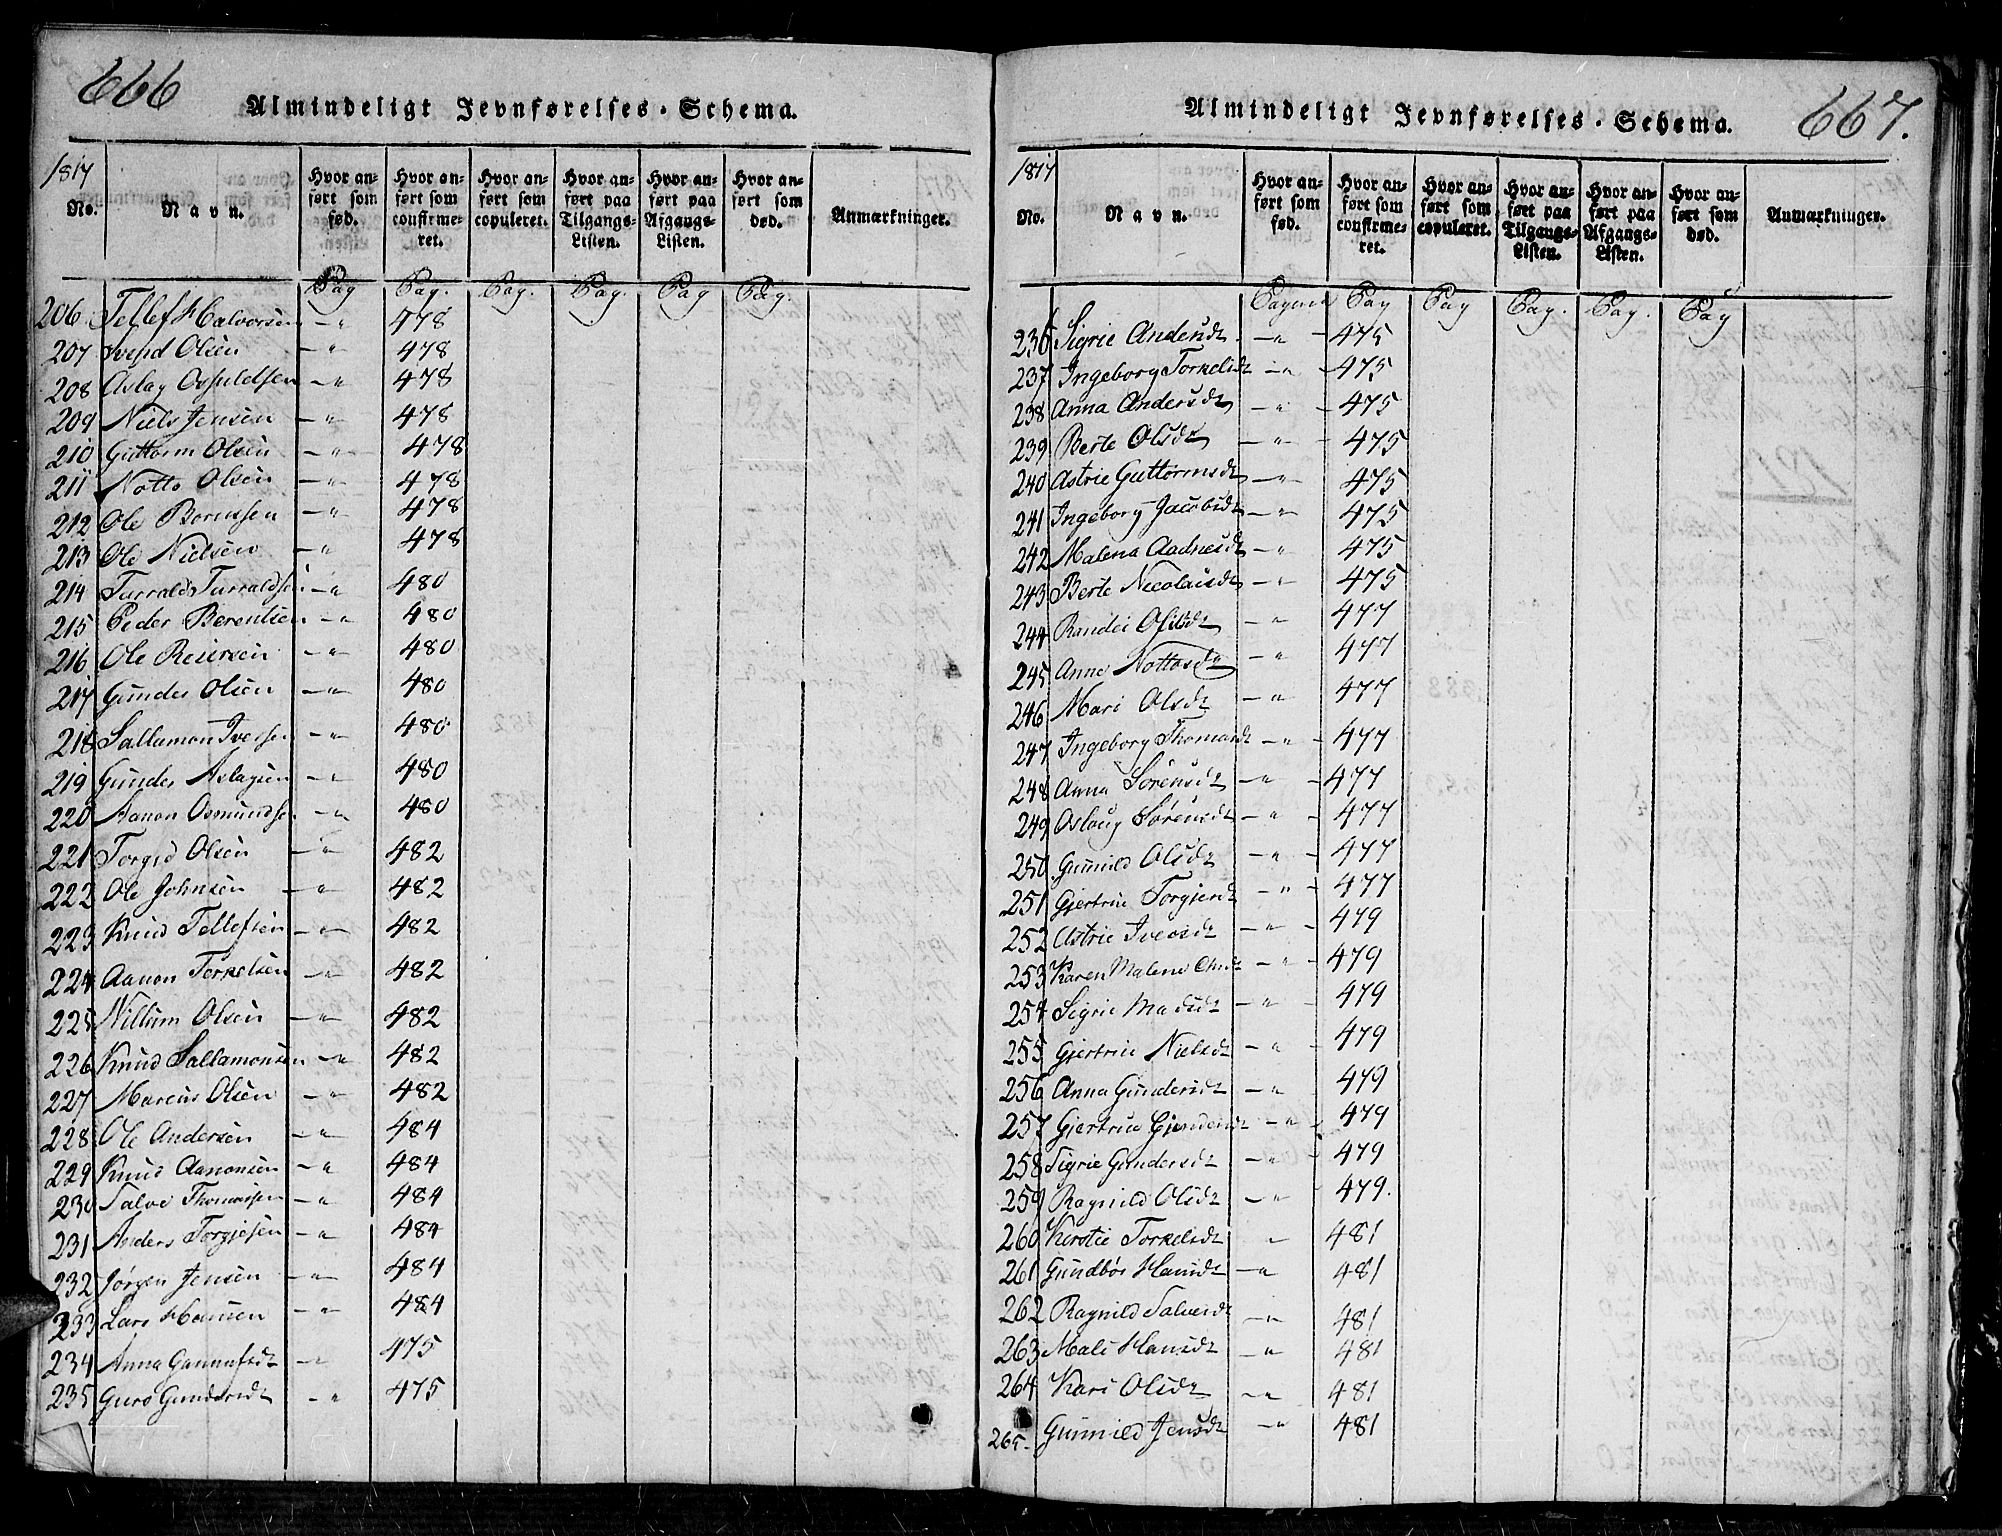 666
Almindeligt Jevnførelses-Schema.
1817
No.
Navn.
Hvor anført som fød.
Hvor anført som confirmeret.
Hvor anført som copuleret.
Hvor anført paa Tilgangs-Listen.
Hvor anført paa Afgangs-Listen.
Hvor anført som død.
Anmærkninger.
Pag Pag. Pag. Pag. Pag Pag.
206 Tellef Halvorsen — " 478
207 Svend Olsen — " 478
208 Aslag Osfuldsen — " 478
209 Niels Jensen — " 478
210 Guttorm Olsen — " 478
211 Notto Olsen — " 478
212 Ole — " 478
213 Ole Nielsen — " 478
214 Turrald Turraldsen — " 480
215 Peder Berentsen — " 480
216 Ole Reiersen — " 480
217 Gunder Olsen — " 480
218 Sallamon Iversen — " 480
219 Gunder Aslagsen — " 480
220 Aanon Osmundsen — " 480
221 Torged Olsen — " 482
222 Ole Johnsen — " 482
223 Knud Tellefsen — " 482
224 Aanon Terkelsen — " 482
225 Nillum Olsen — " 482
226 Knud Sallamonsen — " 482
227 Marcus Olsen — " 482
228 Ole Andersen — " 484
229 Knud Aanonsen — " 484
230 Salve Thomassen — " 484
231 Anders Torgjesen — " 484
232 Jørgen Jensen — " 484
233 Lars Hansen — " 484
234 Anna Gunnufsdt — " 475
235 Guro Gundersdt — " 475
Almindeligt Jevnførelses-Schema.
667.
1817
No.
Navn.
Hvor anført som fød.
Hvor anført som confirmeret.
Hvor anført som copuleret.
Hvor anført paa Tilgangs-Listen.
Hvor anført paa Afgangs-Listen.
Hvor anført som død.
Anmærkninger.
Pagina Pag Pag Pag. Pag. Pag
236 Sigrie Andersdt — " — 475
237 Ingeborg Torkelsdt — " — 475
238 Anna Andersdt — " — 475
239 Berte Olsdt — " — 475
240 Astrie Guttormsdt — " — 475
241 Ingeborg Jacobsdt — " — 475
242 Malena Aadnesdt — " — 475
243 Berte Nicolaisdt — " — 475
244 Randei Olsdt — " — 477
245 Anne Nottosdt — " — 477
246 Mari Olsdt — " — 477
247 Ingeborg Thomasdt — " — 477
248 Anna Sørensdt — " — 477
249 Aslaug Sørensdt — " — 477
250 Gunnild Olsdt — " — 477
251 Gjertrue Torgjersdt — " — 477
252 Astrie Iversdt — " — 479
253 Karen Malene — " — 479
254 Sigrie Madsdt — " — 479
255 Gjertrue Nielsdt — " 479
256 Anna Gundersdt — " 479
257 Gjertrue Gundersdt — " 479
258 Sigrie Gundersdt — " 479
259 Ragnild Olsdt — " 479.
260 Kirstie Torkelsdt " 481
261 Gundbør Hansdt — " 481
262 Ragnild Salvesdt — " 481
263 Mali Hansdt — " 481
264 Kari Olsdt — " 481
265. Gunnild Jensdt — " 481